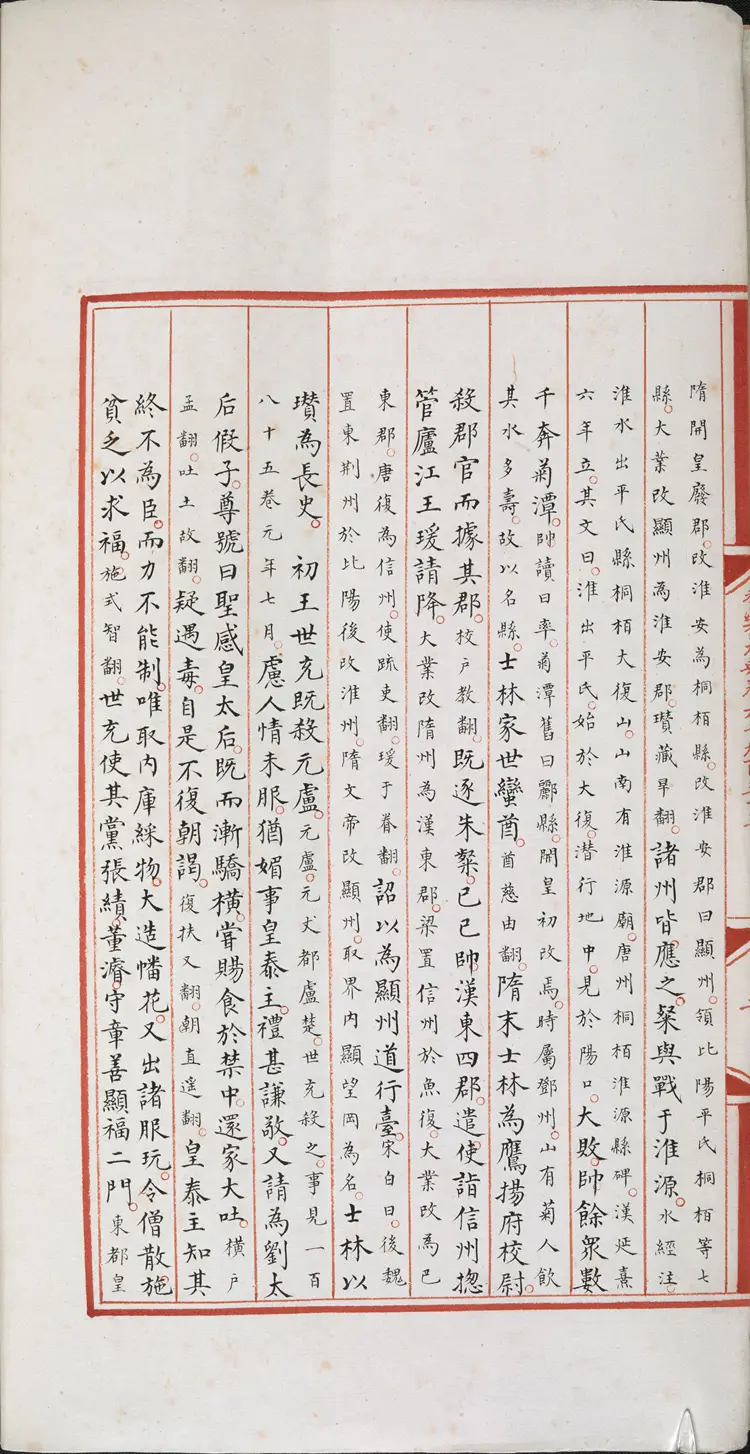 隋開皇廢郡。改淮安為桐栢縣。改淮安郡曰顯州。領比陽平氏桐栢等七
縣。大業改顯州為淮安郡。瓚藏旱翻。諸州皆應之。粲與戰于淮源。水經注。
淮水出平氏縣桐栢大復山。山南有淮源廟。唐州桐栢淮源縣碑。漢延熹
六年立。其文曰。淮出平氏。始於大復。潛行地中。見於陽口。大敗。帥餘眾數
千奔菊潭。帥讀曰率。菊潭舊曰酈縣。開皇初改焉。時屬鄧州。山有菊人飲
其水多壽。故以名縣。士林家世蠻酋。酋慈由翻。隋末士林為鷹揚府校尉。
殺郡官而據其郡。校户教翻。既逐朱粲。己巳。帥漢東四郡。遣使詣信州揔
管廬江王瑗請降。大業改隋州為漢東郡。梁置信州於魚復。大業改為巴
東郡。唐復為信州。使疏吏翻。瑗于眷翻。詔以為顯州道行臺。宋白曰。後魏
置東荆州於比陽後改淮州。隋文帝改顯州。取界内顯望岡為名。士林以
瓚為長史。 初王世充既殺元盧。元盧。元文都盧楚。世充殺之。事見一百
八十五卷元年七月。慮人情未服。猶媚事皇泰主。禮甚謙敬。又請為劉太
后假子。尊號曰聖感皇太后。既而漸驕橫。嘗賜食於禁中。還家大吐。橫户
孟翻。吐土故翻。疑遇毒。自是不復朝謁。復扶又翻。朝直遥翻。皇泰主知其
終不為臣。而力不能制。唯取内庫綵物。大造幡花。又出諸服玩。令僧散施
貧乏以求福。施式智翻。世充使其黨張績。董濬。守章善顯福二門。東都皇